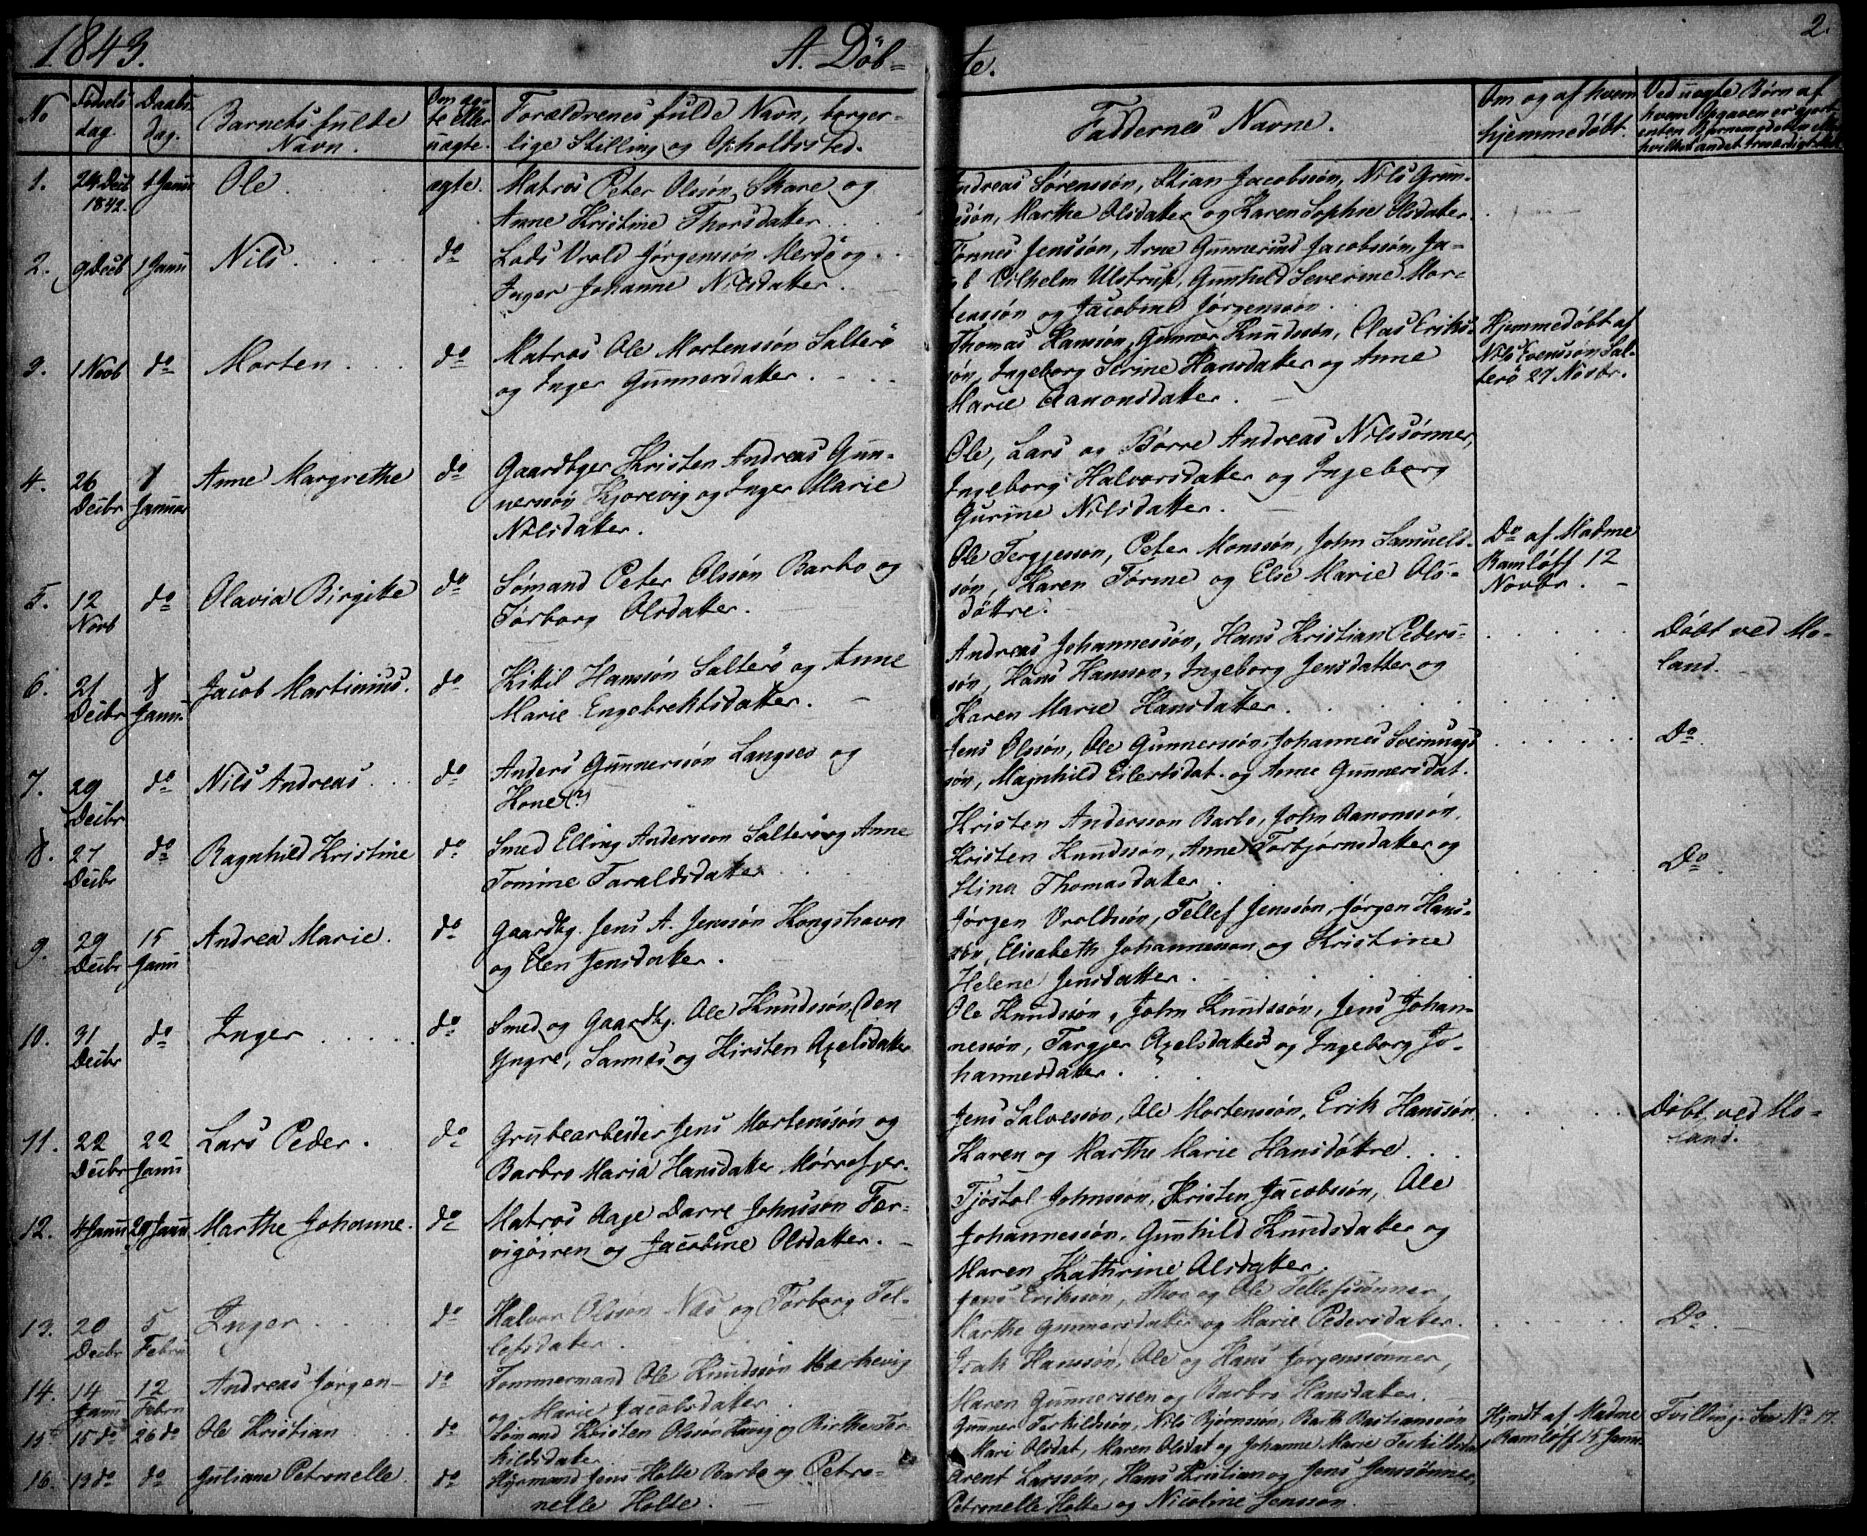 1843.
A. Døb=
te.
2.
No
Fødsels dag.
Daabs dag.
Barnets fulde Navn.
Om ægte eller uægte.
Forældrenes fulde Navn, borgerlige Stilling og Opholdssted.
Faddernes Navne.
Om og af hvem hjemmedøbt.
Ved uægte Børn af hvem Opgaven er gjort
1. 24 Decb 1842. 1 Janu Ole ægte.
Matros Peter Olssøn Skare og
Anne Kristine Thorsdatter.
Andreas Sørenssøn, Stian Jacobssøn, Nils Grun-
søn, Marthe Olsdatter og Karen Sophie Olsdatter.
2. 9 Decb 1 Janu Nils do
Lods Vrold Jørgenssøn Merdø og
Inger Johanne Nilsdatter.
Tønnes Jenssøn, Arne Gunnerius Jacobssøn, Ja-
Vilhelm Ulstrup, Gunhild Severine Mor-
tenssøn og Jacobine Jørgenssøn.
3. 1 Novb do Morten do
Matros Ole Mortenssøn Salterø
og Inger Gunnersdatter.
Thomas Hanssøn, Gunner Knudssøn, Olas Eriks-
søn, Ingeborg Serine Hansdatter og Anne
Marie Aanonsdatter.
Hjemmedøbt af
Nils Evenssøn Sal-
terø 27 Novbr.
4. 26 Decbr 8 Januar Anne Margrethe do
Gaardbger Kristen Andreas Gun-
nersøn Kjorevig og Inger Marie
Nilsdatter.
Ole, Lars og Børre Andreas Nilssønner,
Ingeborg Halvorsdatter og Ingeborg
Gurine Nilsdatter.
5. 12 Novb do Olavia Birgitte do
Sømand Peter Olssøn Barbo og
Tørborg Olsdatter.
Ole Tergjessøn, Peter Monssøn, John Samuels-
søn, Karen Tørine og Else Marie Ols-
døttre.
Do af Madme
Ramløff 12
Novbr.
6. 21 Decbr 8 Janu. Jacob Martinius. do
Kittil Hanssøn Salterø og Anne
Marie Engebrektsdatter.
Andreas Johannessøn, Hans Kristian Peders-
søn, Hans Hanssøn, Ingeborg Jensdatter og
Karen Marie Hansdatter.
Døbt ved Mo-
land.
7. 29 Decbr do Nils Andreas do
Anders Gunnerssøn Langsev og
Kone (?)
Jens Olssøn, Ole Gunnerssøn, Johannes Sveinungs
søn, Magnhild Eilertsdat. og Anne Gunnersdat.
Do.
8. 27 Decbr do Ragnhild Kristine do
Smed Elling Anderssøn Salterø og Anne
Tomine Taraldsdatter
Kristen Anderssøn Barbo, John Aanonssøn,
Kristen Knudssøn, Anne Torbjørnsdatter og
Stina Thomasdatter.
Do.
9. 29 Decbr 15 Janu Andrea Marie. do
Gaardbg. Jens A. Jenssøn Kongshavn
og Elen Jensdatter.
Jørgen Vroldssøn, Tellef Jenssøn, Jørgen Hans-
søn, Elisabeth Johannessøn og Kristine
Helene Jensdatter.
10. 31 Decbr do Inger do
Smed og Gaardbg. Ole Knudssøn, den
Yngre, Sannes og Kirsten Axelsdatter
Ole Knudssøn, John Knudssøn, Jens Johan-
nessøn, Targjer Axelsdatter og Ingeborg Jo-
hannesdatter.
11. 22 Decbr 22 Janu Lars Peder. do
Grubearbeider Jens Mortenssøn og
Barbro Maria Hansdatter Mørrefjer.
Jens Salvessøn, Ole Mortenssøn, Erik Hanssøn,
Karen og Marthe Marie Hansdøttre.
Døbt ved Mo-
land.
12. 4 Janu 29 Janu Marthe Johanne. do
Matros Aage Darre Johnssøn Fær-
vigøiren og Jacobine Olsdatter.
Tjøstøl Johnssøn, Kristen Jacobssøn, Ole
Johannessøn, Gunhild Knudsdatter og
Maren Kathrine Olsdatter.
13. 20 Decbr 5 Febru Inger do
Halvor Olssøn Næs og Torborg Tel-
lefsdatter.
Jens Erikssøn, Thor og Ole Tellefssønner,
Marthe Gunnersdatter og Marie Pedersdatter.
Do.
14. 14 Janu 12 Febru Andreas Jørgen do
Tømmermand Ole Knudssøn Mærkevig
og Marie Jacobsdatter.
Isak Hanssøn, Ole og Hans Jørgenssønner,
Maren Gunnerssen og Barbro Hansdatter.
15. 15 do 26 do Ole Kristian do
Sømand Kristen Olssøn og Birthe Ter-
kildsdatter
Gunner Terkildssøn, Nils Bjørnssøn, Bastianssøn
Mari Olsdat, Maren Olsdat og Johanne Marie Terkildsdat
Hjmdt af Madme
Ramløff 15 Janu.
Tvilling. See No 17.
16. 13 do do Juliane Petronelle do
Hyrmand Jens Holte Barbo og Petro-
nelle Holte.
Arent Larssøn, Hans Kristian og Jens Jenssønner,
Petronelle Holte og Nicoline Jenssøn.